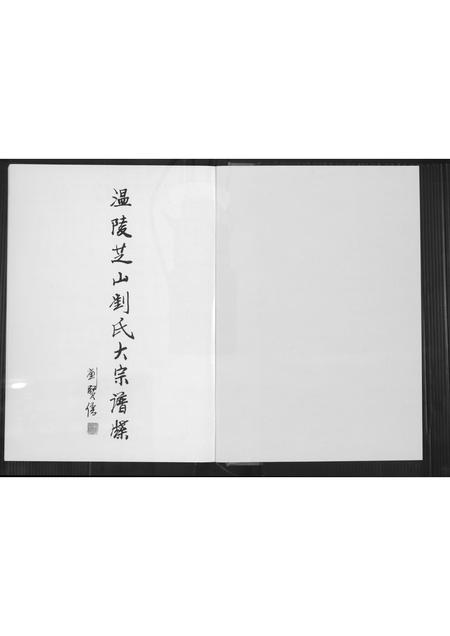 温陵芝山劉氏大宗譜牒
劉賢儒